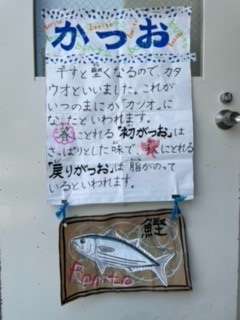 かつお
干すと堅くなるので、カタ
ウオといいました。これが
いつのまにか「カツオ」に
なったといわれます。
春にとれる「初がつお」は
さっぱりとした味で、秋にとれる
「戻りがつお」は脂がのって
いるといわれます。
鰹
Bonito